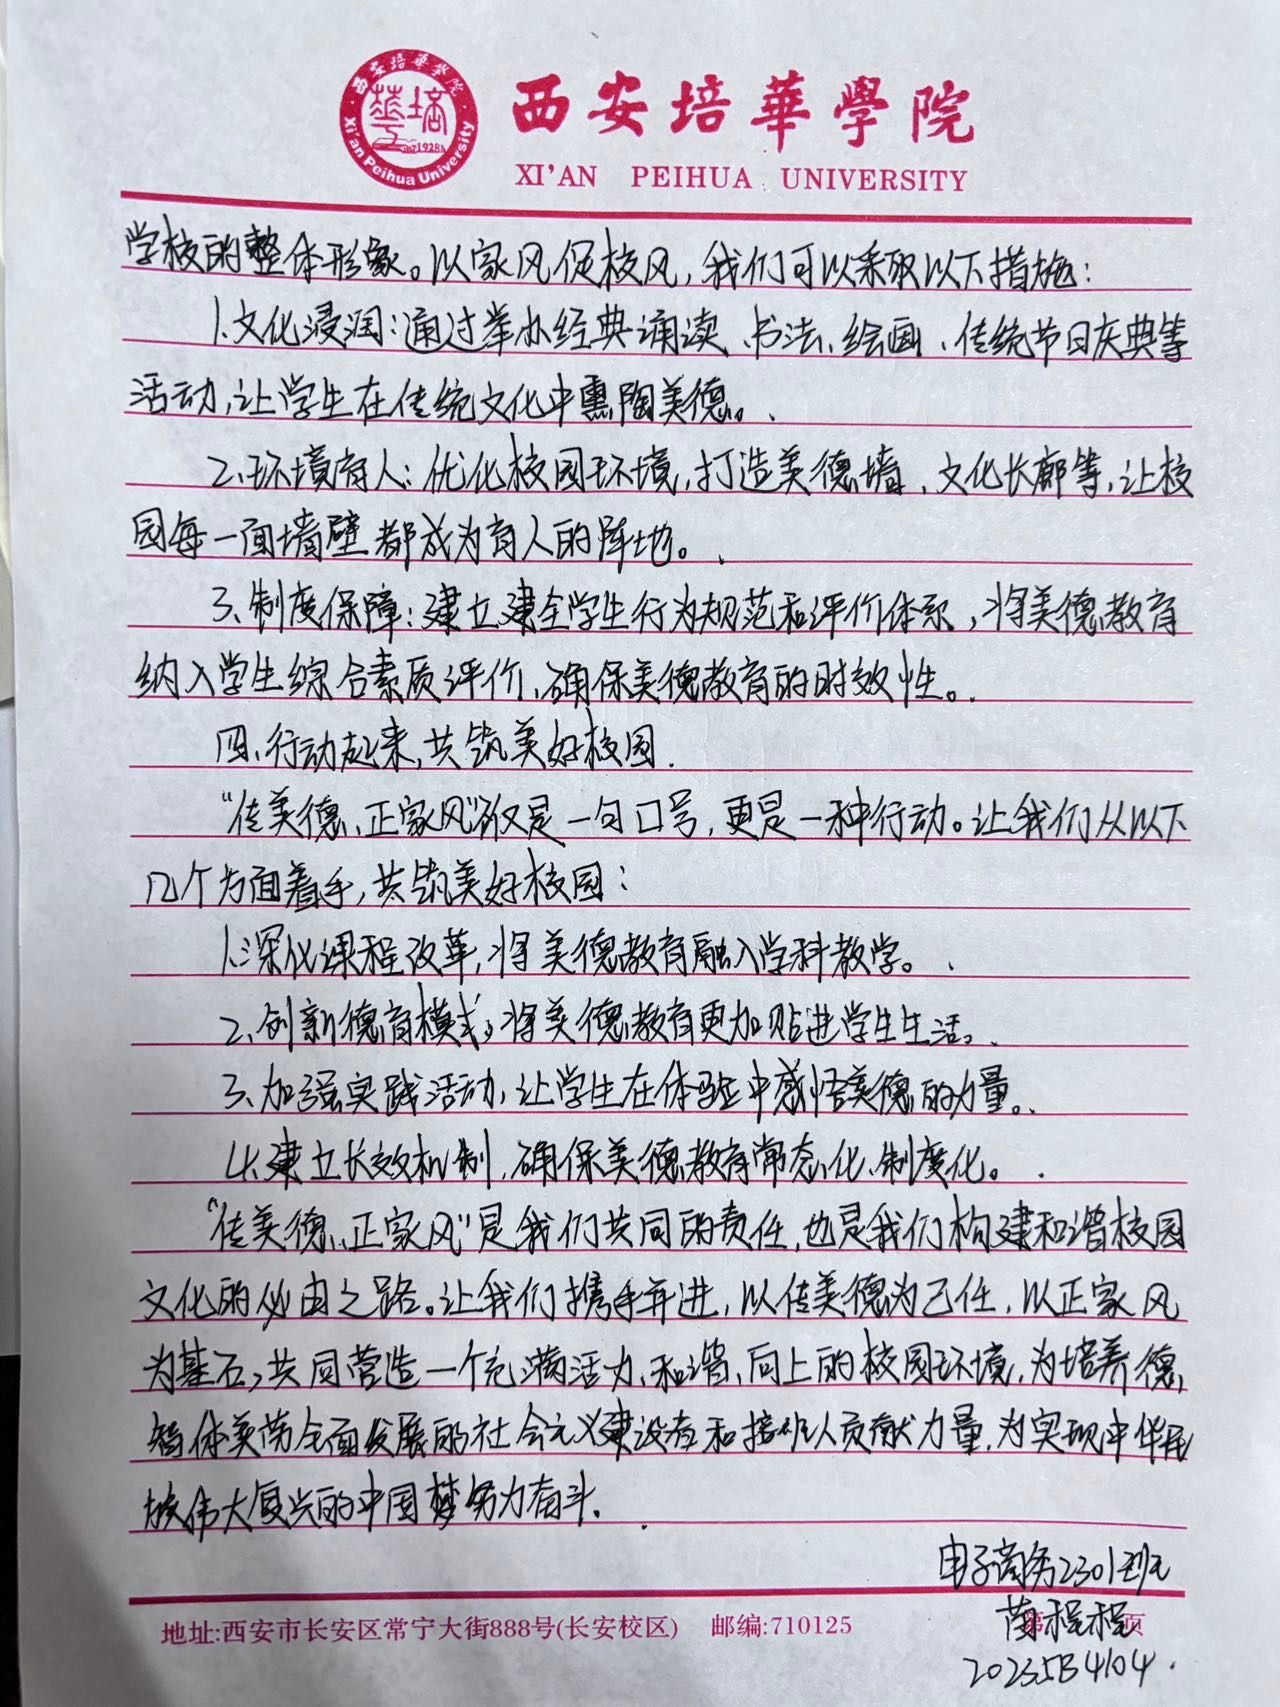 西安培華學院
XI'AN PEIHUA UNIVERSITY
西安培華學院
1928
Xi'an Peihua University
学校的整体形象。以家风促校风，我们可以采取以下措施：
1.文化浸润：通过举办经典诵读、书法、绘画、传统节日庆典等
活动，让学生在传统文化中熏陶美德。
2.环境育人：优化校园环境，打造美德墙、文化长廊等，让校
园每一面墙壁都成为育人的阵地。
3、制度保障：建立建全学生行为规范和评价体系，将美德教育
纳入学生综合素质评价，确保美德教育的时效性。
四、行动起来，共筑美好校园.
“传美德、正家风”不仅是一句口号，更是一种行动。让我们从以下
几个方面着手，共筑美好校园：
1.深化课程改革，将美德教育融入学科教学。
2.创新德育模式，将美德教育更加贴进学生生活。
3、加强实践活动，让学生在体验中感悟美德的力量。
4.建立长效机制，确保美德教育常态化、制度化。
“传美德、正家风”是我们共同的责任，也是我们构建和谐校园
文化的必由之路。让我们携手并进，以传美德为己任，以正家风
为基石，共同营造一个充满活力、和谐、向上的校园环境，为培养德
智体美劳全面发展的社会主义建设者和接班人贡献力量，为实现中华民
族伟大复兴的中国梦努力奋斗。
电子商务2301班
程程
地址:西安市长安区常宁大街888号(长安校区) 邮编:710125 第 页